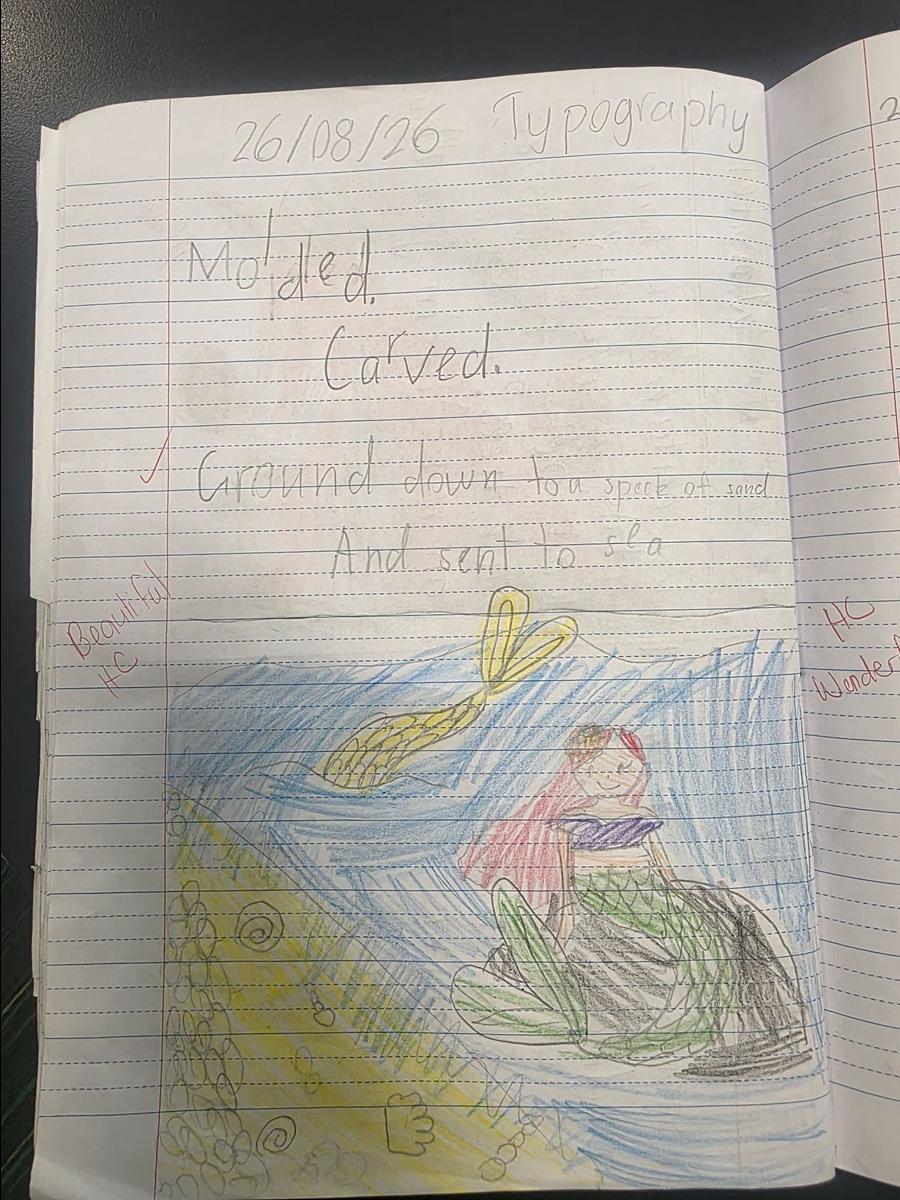 26/08/26 Typography
Molded.
Carved.
Ground down to a speck of sand
And sent to sea
Beautiful
HC
2
HC